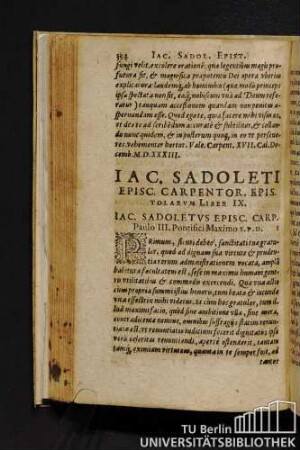 394 IAC. SADOL. EPIST.
fungi velit, excolere orationē, quæ legentibus magis pro-
futura sit, & magnifica præpotentis Dei opera vberius
explicatura: laudemq́; ab hominibus (quæ
ipsa spectata non sit, eaq́; nobis vni
) tanquam accessionem quandam non pœnitus a-
spernandam esse. Quod ego te, qua facere mihi visus es,
vt des te ad scribēdum accuratè & subtiliter, & collau-
do nunc quidem, & in posterum quoq́;, in eo vt perseue-
res vehementer hortor. Vale. Carpent. XVII. Cal. De-
cemb. M.D.XXXIII.
IAC. SADOLETI
EPISC. CARPENTOR. EPIS-
TOLARVM LIBER IX.
IAC. SADOLETVS EPISC. CARP.
Paulo III. Pontifici Maximo S.P.D. I
PRimum, sicuti debeo, sanctitati tuæ gratu-
lor, quod ad dignam sua virtute & pruden-
tia rerum administrationem vocata, ampli
habitura facultatem est, sese in maximis humani gene-
ris vtilitatibus & commodis exercendi. Qua vna
etiam propria summi istius honoris, tum beata & iucunda
vita effectrix mihi videtur. tu cùm hoc gratulor, tum il-
lud maximum, quòd sine ambitione vlla, sine
nouo adiicenda nomine, omnibus suffragijs statim renun-
ciata est. vt renunciatio iudicium fecerit dignitatis: ipsa
verò celeritas renunciandi, aperta sit, ac præ se tulerit
tantq́;, eximiam virtutem, quanta in te semper fuit, ad
tantos
TU Berlin
UNIVERSITÄTSBIBLIOTHEK